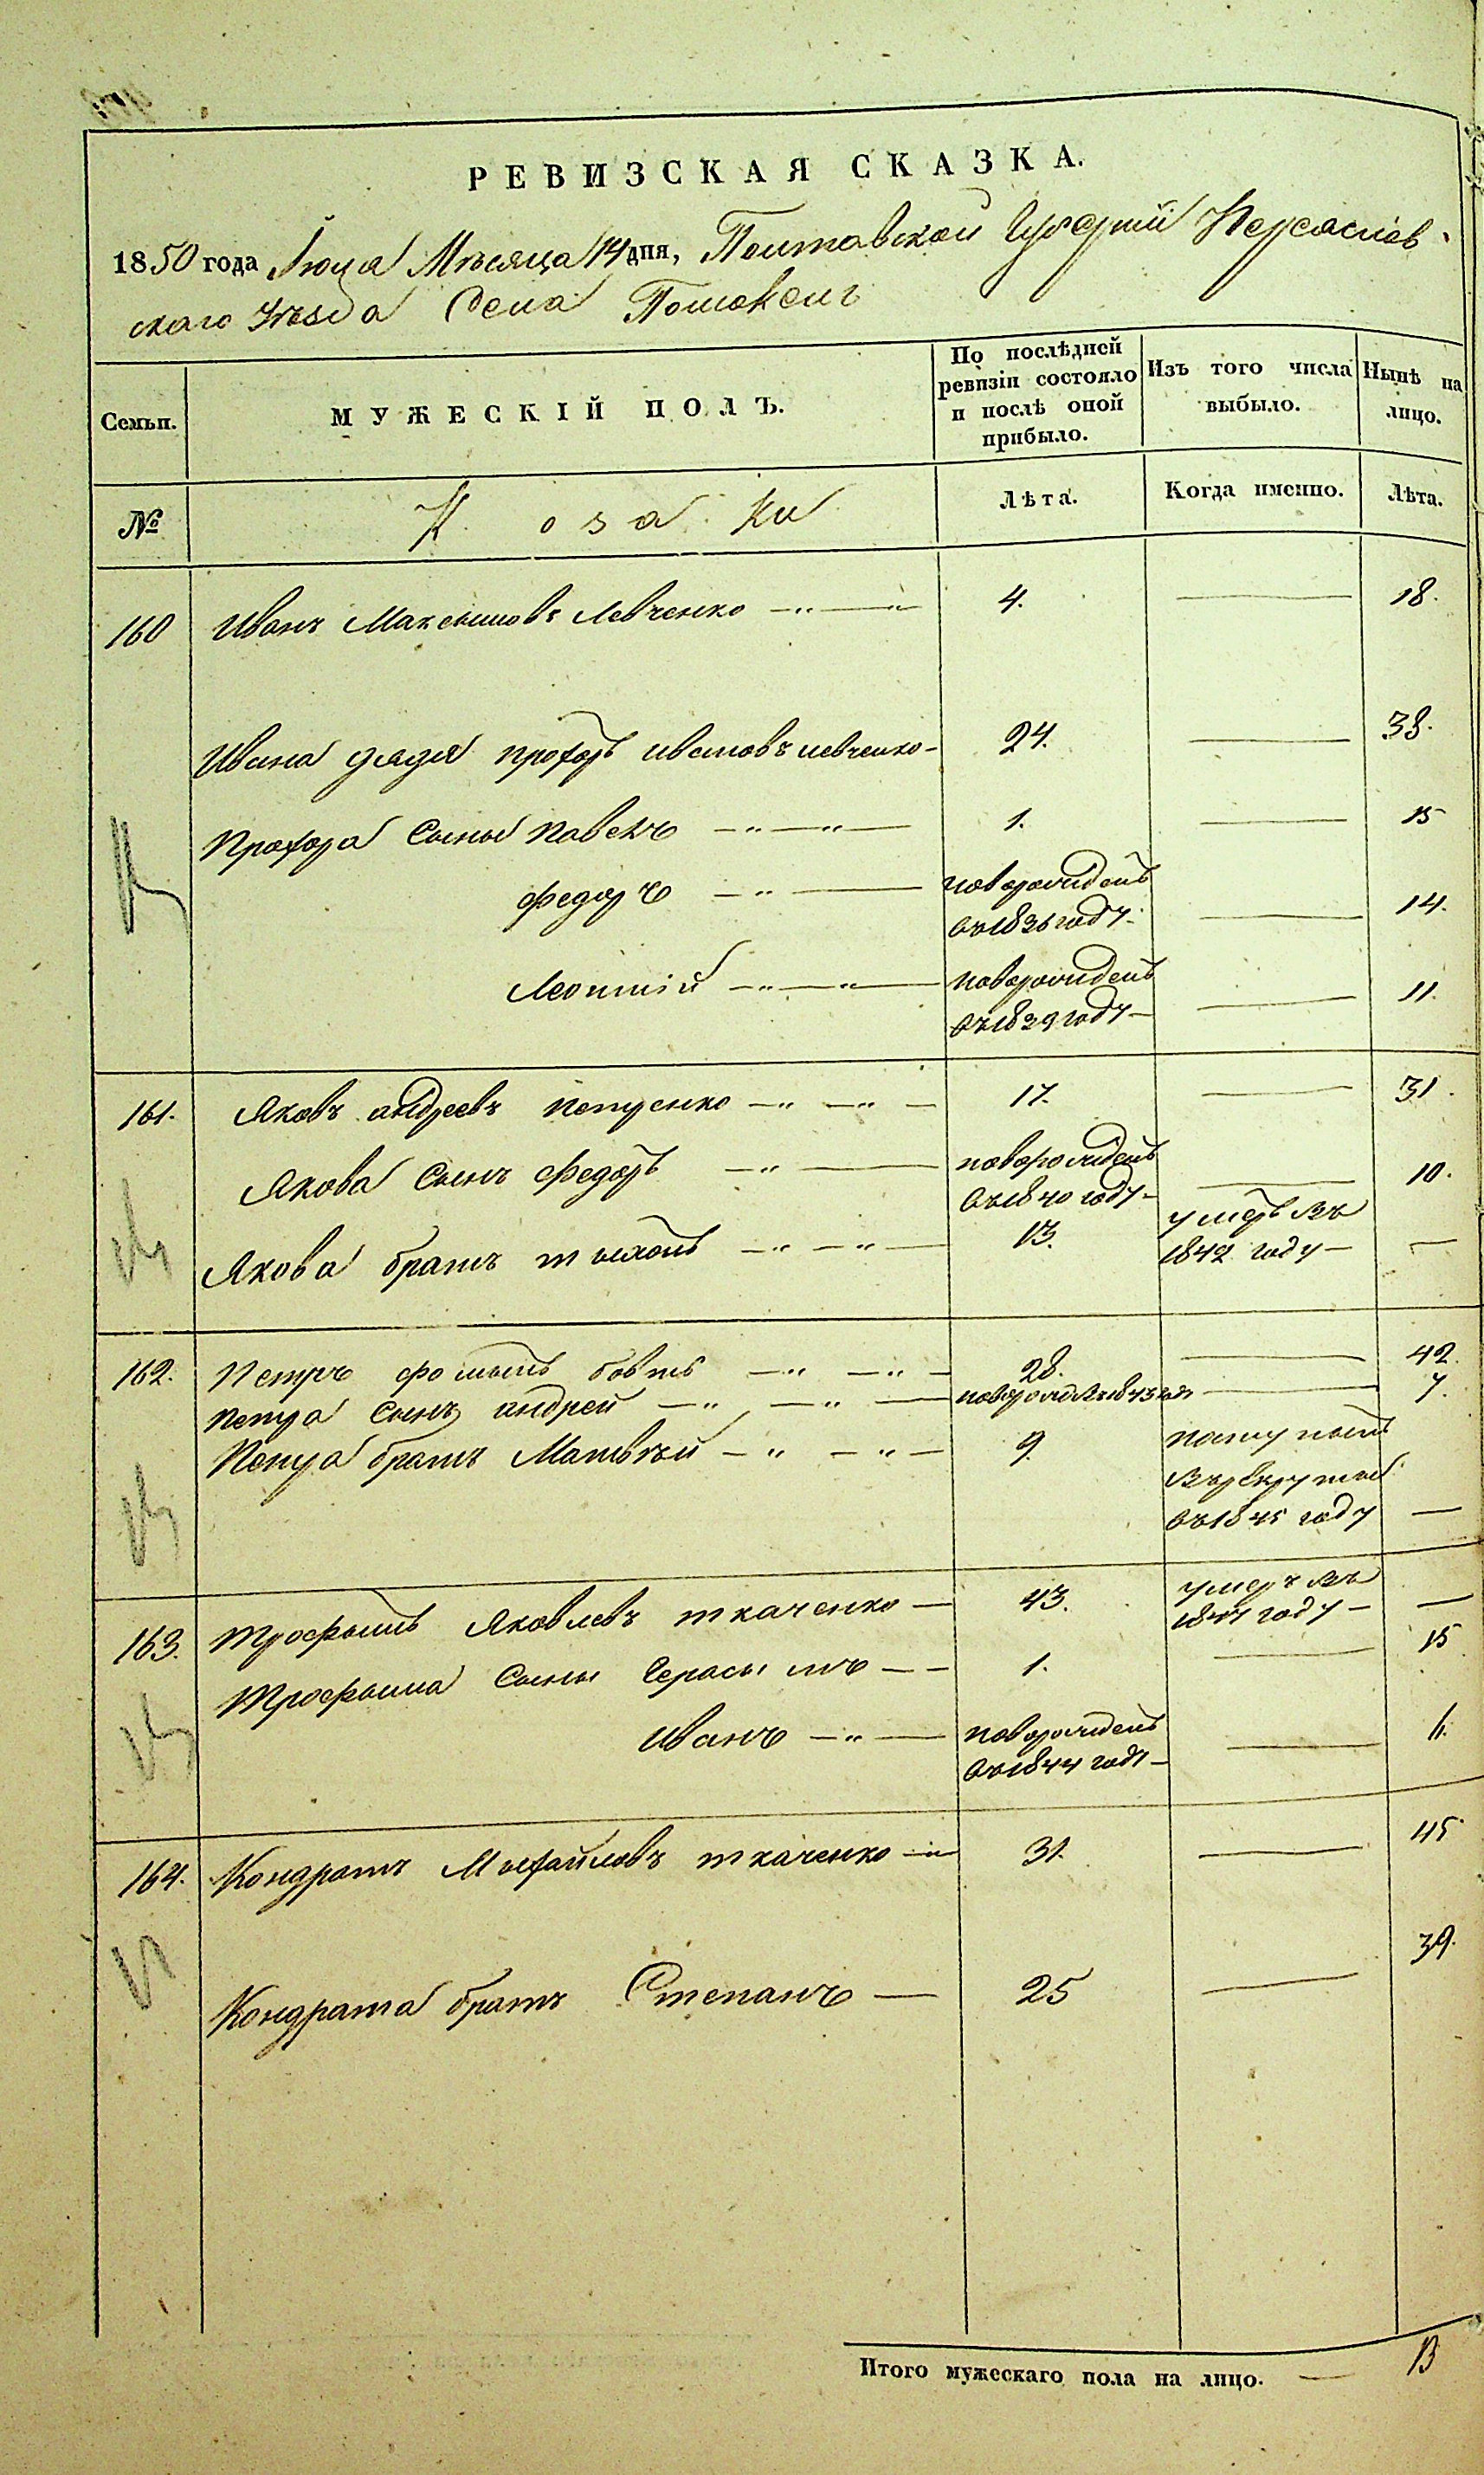 РЕВИЗСКАЯ СКАЗКА.
1850 года Июля Мѣсяца 14 дня, Полтавской Губерніи Переяслов-
скаго уѣзда Села Помоклиг
Семьи. МУЖЕСКІЙ ПОЛЪ. По послѣдней ревизіи состояло и послѣ оной прибыло. Изъ того числа выбыло. Нынѣ на лицо.
№ Козаки Лѣта. Когда именно. Лѣта.
160 Иванъ Максимовъ Левченко 4. 18.
Ивана дядя прохоръ ивановъ левченко 24. 38.
Прохора Сыны павелъ 1. 15
федоръ новорожденъ 14.
въ 1836 году.
Леонтій новорожденъ 11.
въ 1839 году
161. Яковъ андреевъ петренко 17. 31.
Якова Сынъ федоръ новорожденъ 10.
въ 1840 году
Якова братъ тихонъ 13. умеръ въ
1842 году —
162. Петръ фоминъ бовтъ 28. 42.
петра Сынъ андрей новорожд. въ 1843 годѣ 7.
Петра братъ Матвѣй 9. поступилъ
въ рекруты
въ 1845 году —
163. трофимъ Яковлевъ ткаченко 43. умеръ въ
1847 году —
трофима Сыны Герасимъ 1. 15
Иванъ новорожденъ 6.
въ 1844 годѣ
164. Кондратъ Михайловъ ткаченко 31. 45
Кондрата братъ Степанъ 25 39.
Итого мужескаго пола на лицо. — 13